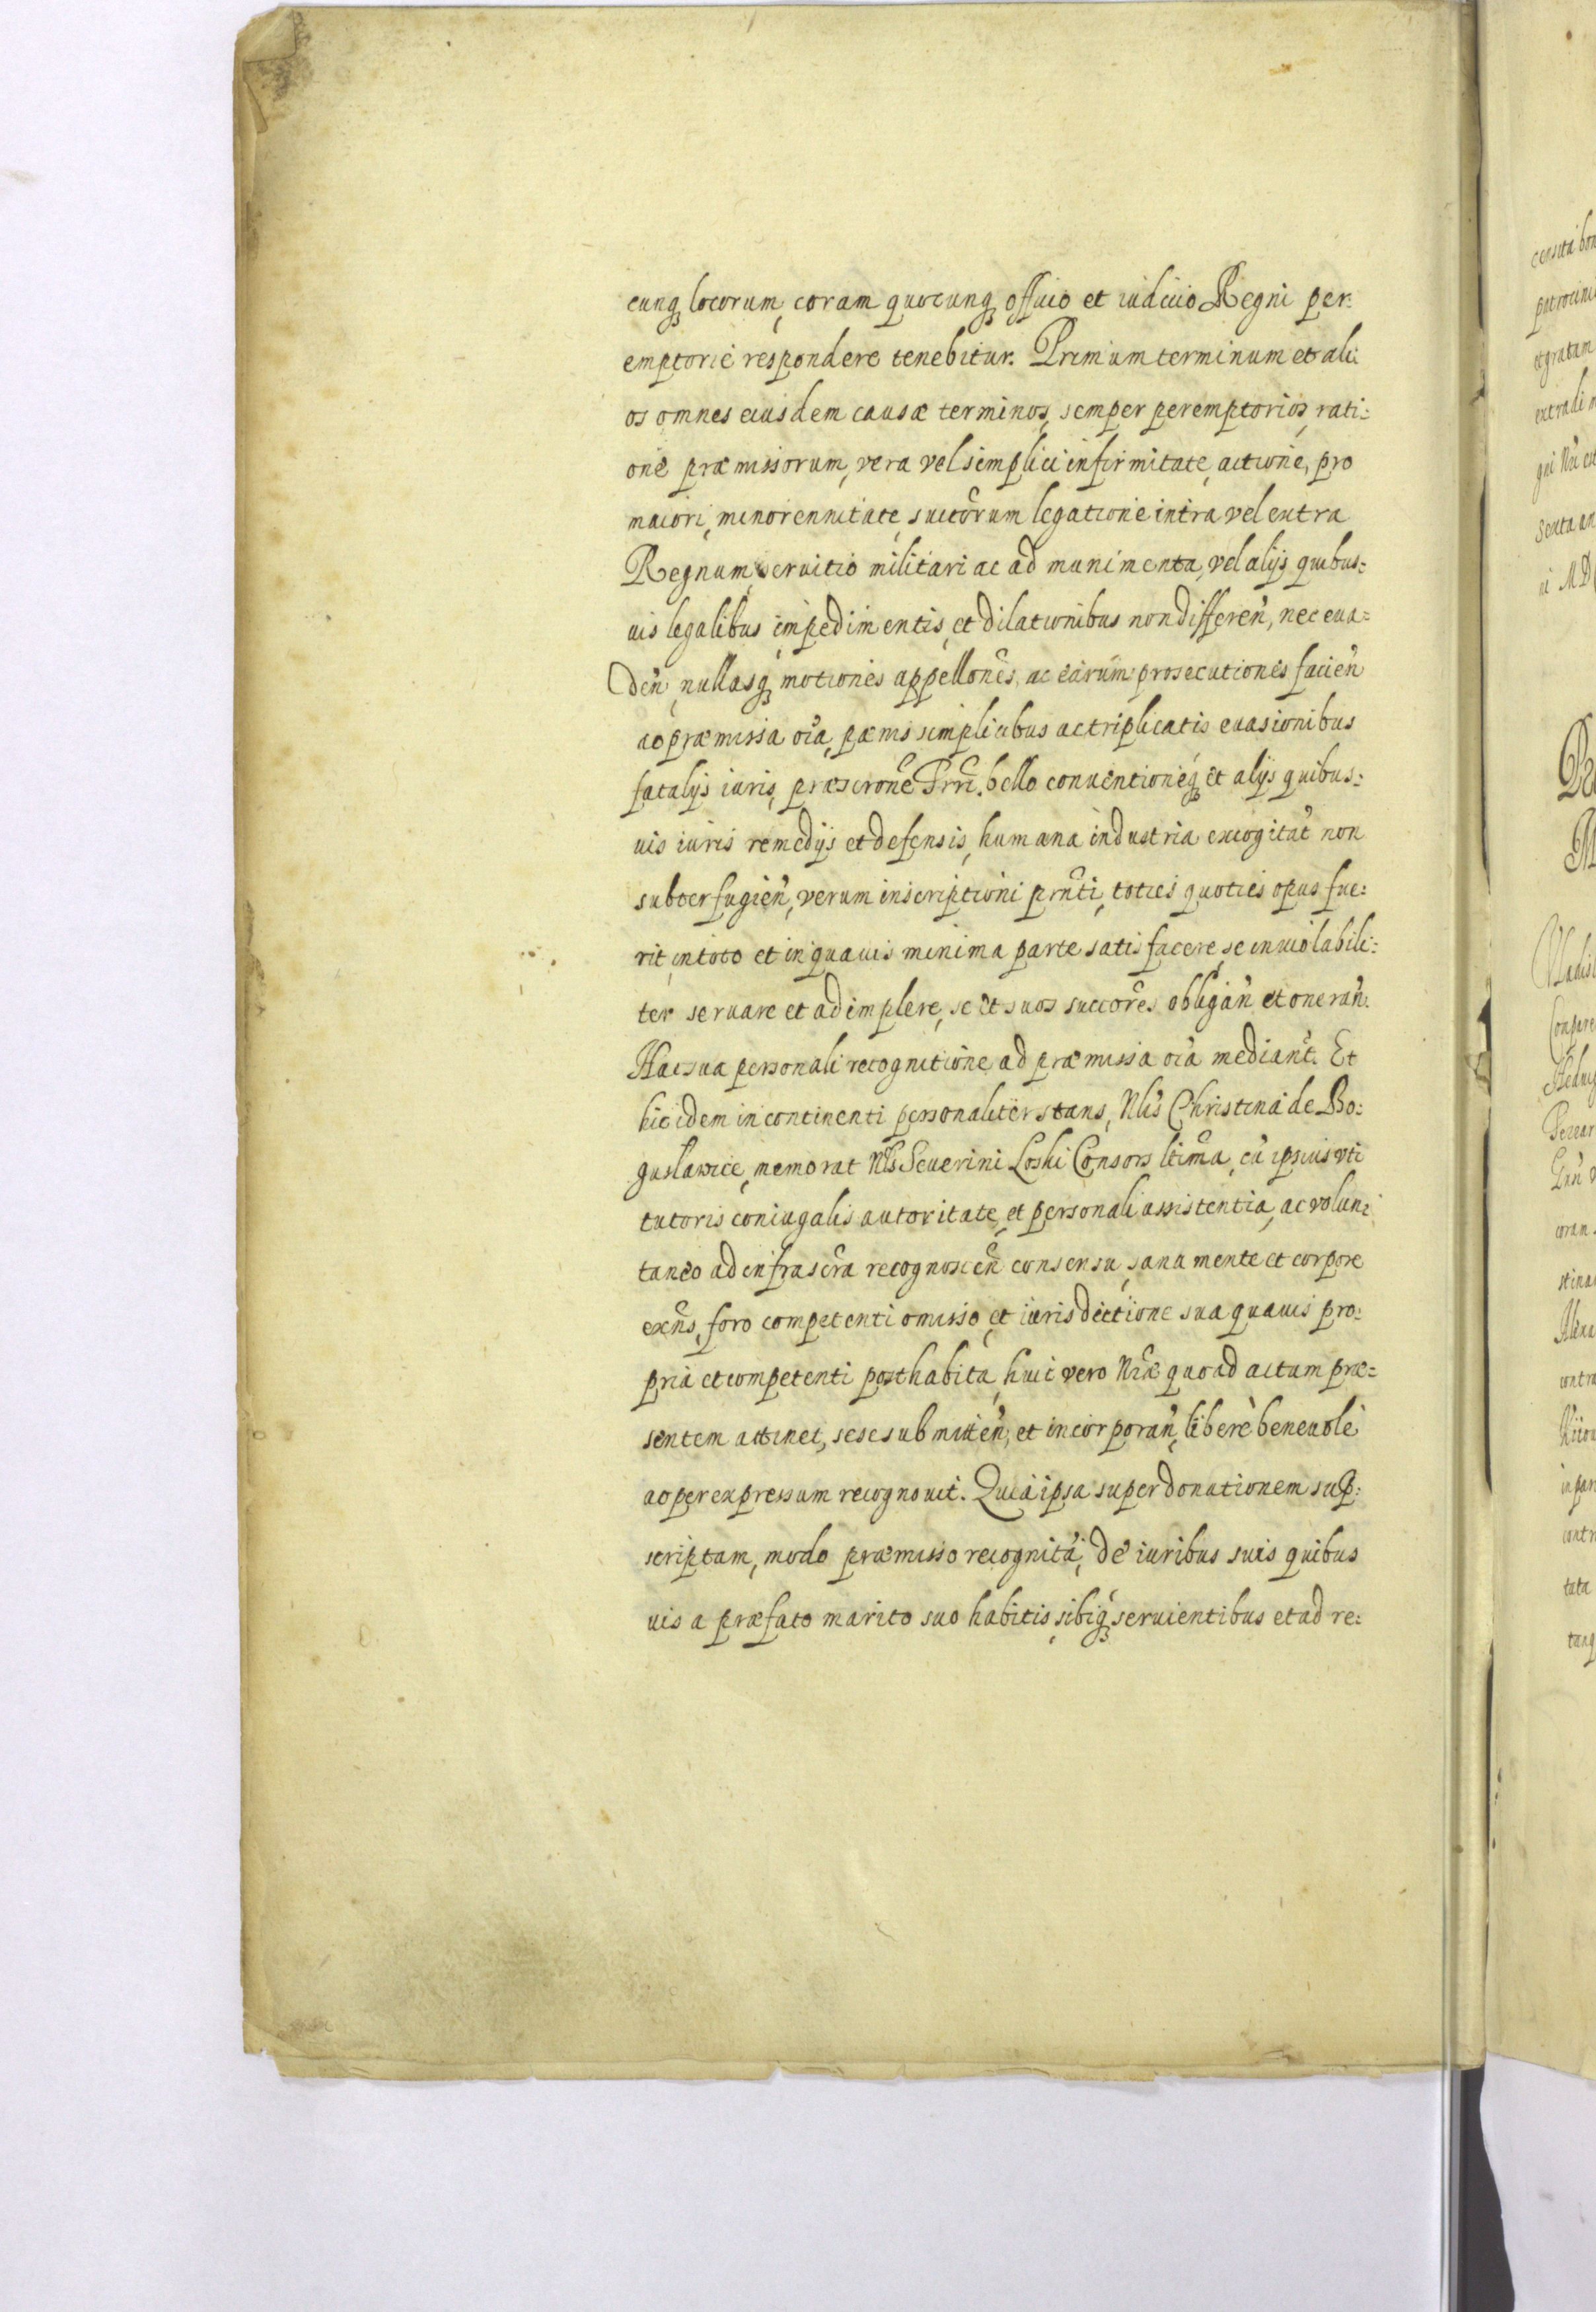 cunq locorum, coram quocunq officio et iudicio Regni per:
emptorie respondere tenebitur. Primum terminum et ali
os omnes eiusdem causæ terminos, semper peremptorios, rati:
one præmissorum, vera vel simplici infirmitate, actione, pro
maiori, minorennitate, succōrum legatione intra vel extra
Regnum, seruitio militari ac ad munimenta, vel alijs quibus:
uis legalibus impedimentis, et dilationibus non differen̄, nec eua:
den̄, nullasq motiones appellōnes, ac earum prosecutiones facien̄
ac præmissa oīa, pænis simplicibus ac triplicatis euasionibus
fatalijs iuris, præscrōne Trrē. bello conuentioneq et alijs quibus:
uis iuris remedijs et defensis, humana industria excogitat non
subterfugien̄, verum inscriptioni prn̄ti, toties quoties opus fue:
rit, in toto et in quauis minima parte satisfacere, se inuiolabili:
ter seruare et adimplere, se et suos succōres obligan̄ et oneran̄.
Hac sua personali recognitione ad præmissa oīa mediant. Et
hic idem in continenti personaliter stans, Nlis Christina de Bo:
guslawice, memorat Nlis Seuerini Loski Consors ltīma, cū ipsius vti
tutoris coniugalis autoritate, et personali assistentia, ac volun:
taneo ad infrascrā recognoscen̄ consensu, sana mente et corpore
exn̄s, foro competenti omisso, et iurisdictione sua quauis pro:
pria et competenti posthabita, huic vero Nrǣ quo ad actum præ:
sentem attinet, sese submitten̄, et incorporan̄, liberè beneuolè
ac per expressum recognouit. Quia ipsa super donationem sup:
scriptam, modo præmisso recognitā, de iuribus suis quibus
uis a præfato marito suo habitis, sibiq seruientibus et ad re: